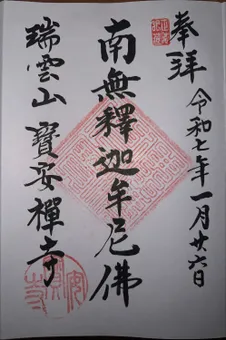 奉拝
令和七年一月廿六日
南無釋迦牟尼佛
瑞雲山
寶安禪寺